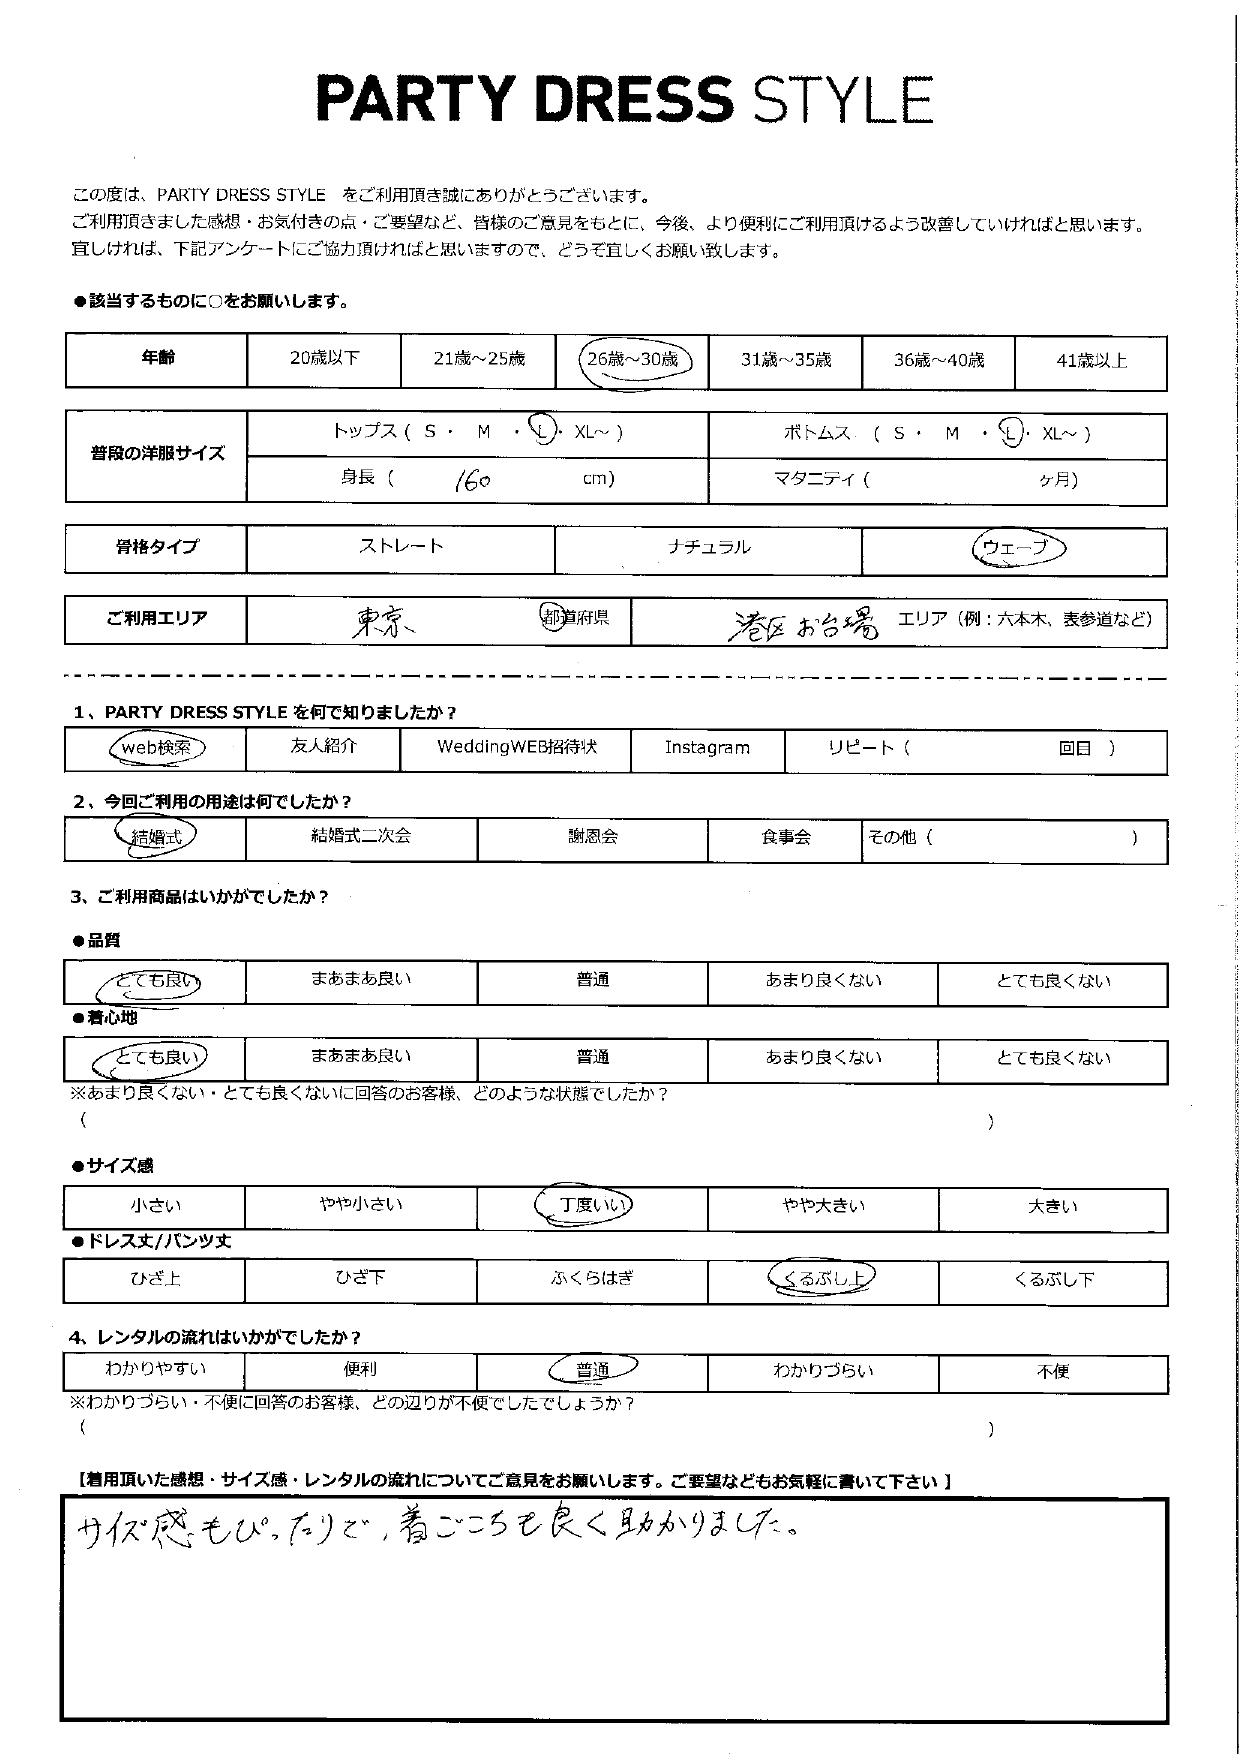 PARTY DRESS STYLE
この度は、PARTY DRESS STYLE をご利用頂き誠にありがとうございます。
ご利用頂きました感想・お気付きの点・ご要望など、皆様のご意見をもとに、今後、より便利にご利用頂けるよう改善していければと思います。
宜しければ、下記アンケートにご協力頂ければと思いますので、どうぞ宜しくお願い致します。
●該当するものに○をお願いします。
年齢 20歳以下 21歳～25歳 26歳～30歳 31歳～35歳 36歳～40歳 41歳以上
普段の洋服サイズ トップス ( S ・ M ・ L ・ XL～ ) ボトムス ( S ・ M ・ L ・ XL～ )
身長 ( 160 cm) マタニティ ( ヶ月)
骨格タイプ ストレート ナチュラル ウェーブ
ご利用エリア 東京 都道府県 港区 お台場 エリア（例：六本木、表参道など）
1、PARTY DRESS STYLE を何で知りましたか？
web検索 友人紹介 WeddingWEB招待状 Instagram リピート ( 回目 )
2、今回ご利用の用途は何でしたか？
結婚式 結婚式二次会 謝恩会 食事会 その他 ( )
3、ご利用商品はいかがでしたか？
●品質
とても良い まあまあ良い 普通 あまり良くない とても良くない
●着心地
とても良い まあまあ良い 普通 あまり良くない とても良くない
※あまり良くない・とても良くないに回答のお客様、どのような状態でしたか？
( )
●サイズ感
小さい やや小さい 丁度いい やや大きい 大きい
●ドレス丈/パンツ丈
ひざ上 ひざ下 ふくらはぎ くるぶし上 くるぶし下
4、レンタルの流れはいかがでしたか？
わかりやすい 便利 普通 わかりづらい 不便
※わかりづらい・不便に回答のお客様、どの辺りが不便でしたでしょうか？
( )
【着用頂いた感想・サイズ感・レンタルの流れについてご意見をお願いします。ご要望などもお気軽に書いて下さい】
サイズ感もぴったりで、着ごこちも良く助かりました。